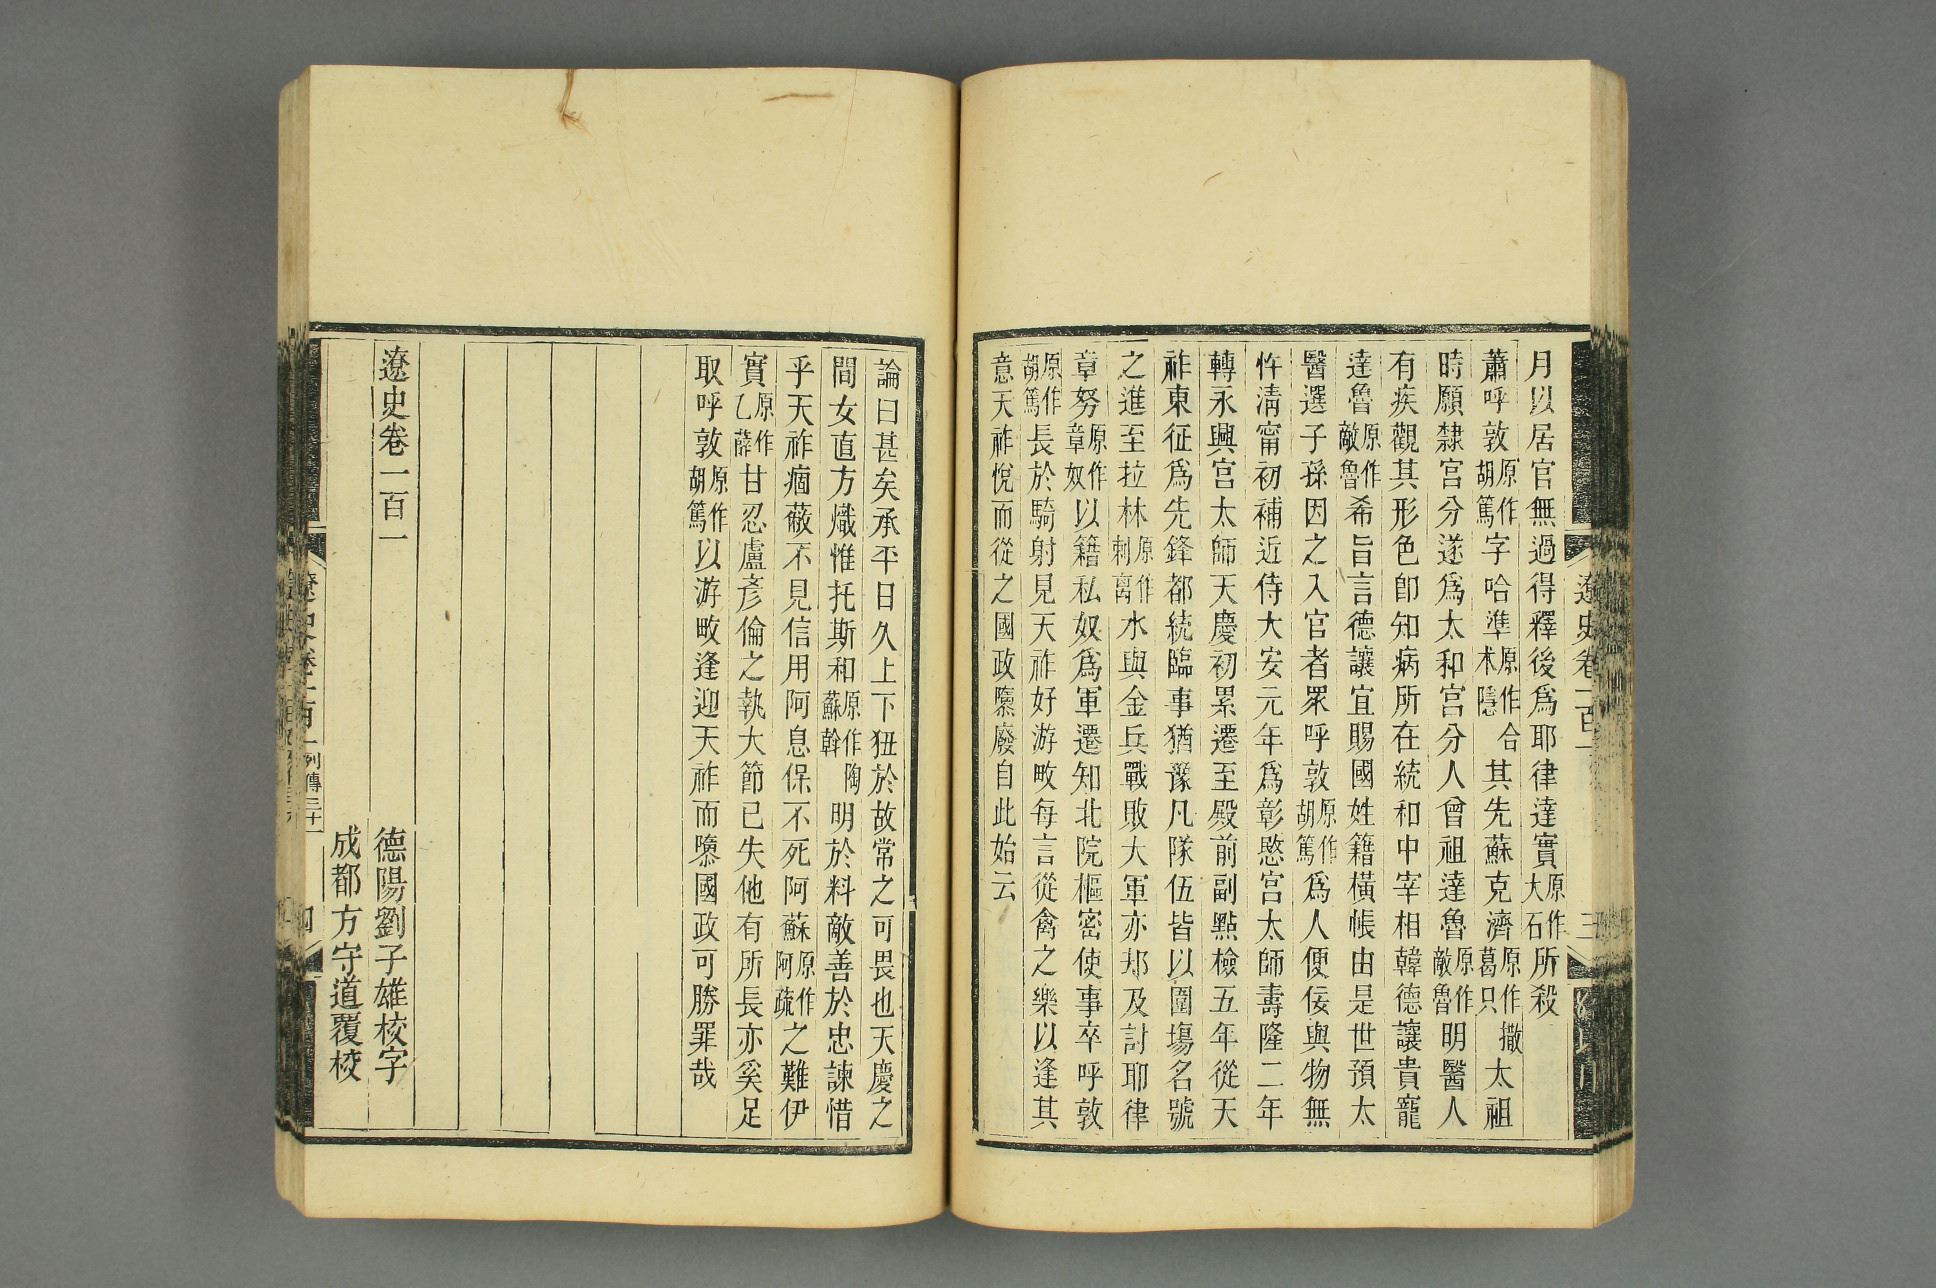 月以居官無過得釋後爲耶律達實原作大石所殺
蕭呼敦原作胡篤字哈準原作合术隱其先蘇克濟原作撒葛只太祖
時願隸宮分遂爲太和宮分人曾祖達魯原作敵魯明醫人
有疾觀其形色卽知病所在統和中宰相韓德讓貴寵
達魯原作敵魯希旨言德讓宜賜國姓籍橫帳由是世預太
醫選子孫因之入官者眾呼敦原作胡篤爲人便佞與物無
忤淸甯初補近侍大安元年爲彰愍宮太師壽隆二年
轉永興宮太師天慶初累遷至殿前副點檢五年從天
祚東征爲先鋒都統臨事猶豫凡隊伍皆以圍場名號
之進至拉林原作剌离水與金兵戰敗大軍亦却及討耶律
章努原作章奴以籍私奴爲軍遷知北院樞密使事卒呼敦
原作胡篤長於騎射見天祚好游畋每言從禽之樂以逢其
意天祚悅而從之國政隳廢自此始云
遼史卷一百一
三
論曰甚矣承平日久上下狃於故常之可畏也天慶之
間女直方熾惟托斯和原作陶蘇斡明於料敵善於忠諫惜
乎天祚痼蔽不見信用阿息保不死阿蘇原作阿疏之難伊
實原作乙薛甘忍盧彥倫之執大節已失他有所長亦奚足
取呼敦原作胡篤以游畋逢迎天祚而隳國政可勝罪哉
遼史卷一百一
德陽劉子雄校字
成都方守道覆校
遼史卷一百一 列傳三十一
四